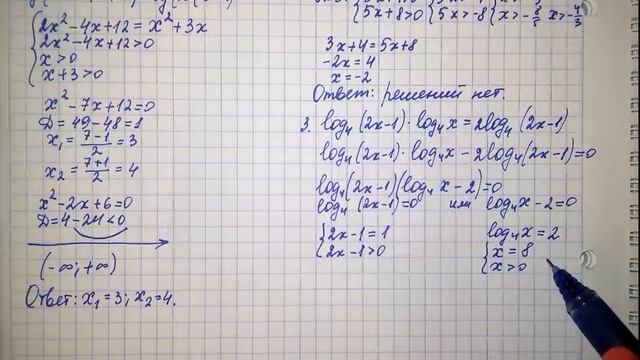 2x²-4x+12=x²+3x
2x²-4x+12>0
x>0
x+3>0
x²-7x+12=0
D=49-48=1
x₁=(7-1)/2=3
x₂=(7+1)/2=4
x²-2x+6=0
D=4-24<0
(-∞;+∞)
Ответ: x₁=3; x₂=4.
5x+8>0 5x>-8 x>-8/5 x>-4/3
3x+4=5x+8
-2x=4
x=-2
Ответ: решений нет.
3. log₄(2x-1)·log₄x=2log₄(2x-1)
log₄(2x-1)·log₄x-2log₄(2x-1)=0
log₄(2x-1)(log₄x-2)=0
log₄(2x-1)=0 или log₄x-2=0
2x-1=1
2x-1>0
log₄x=2
x=8
x>0